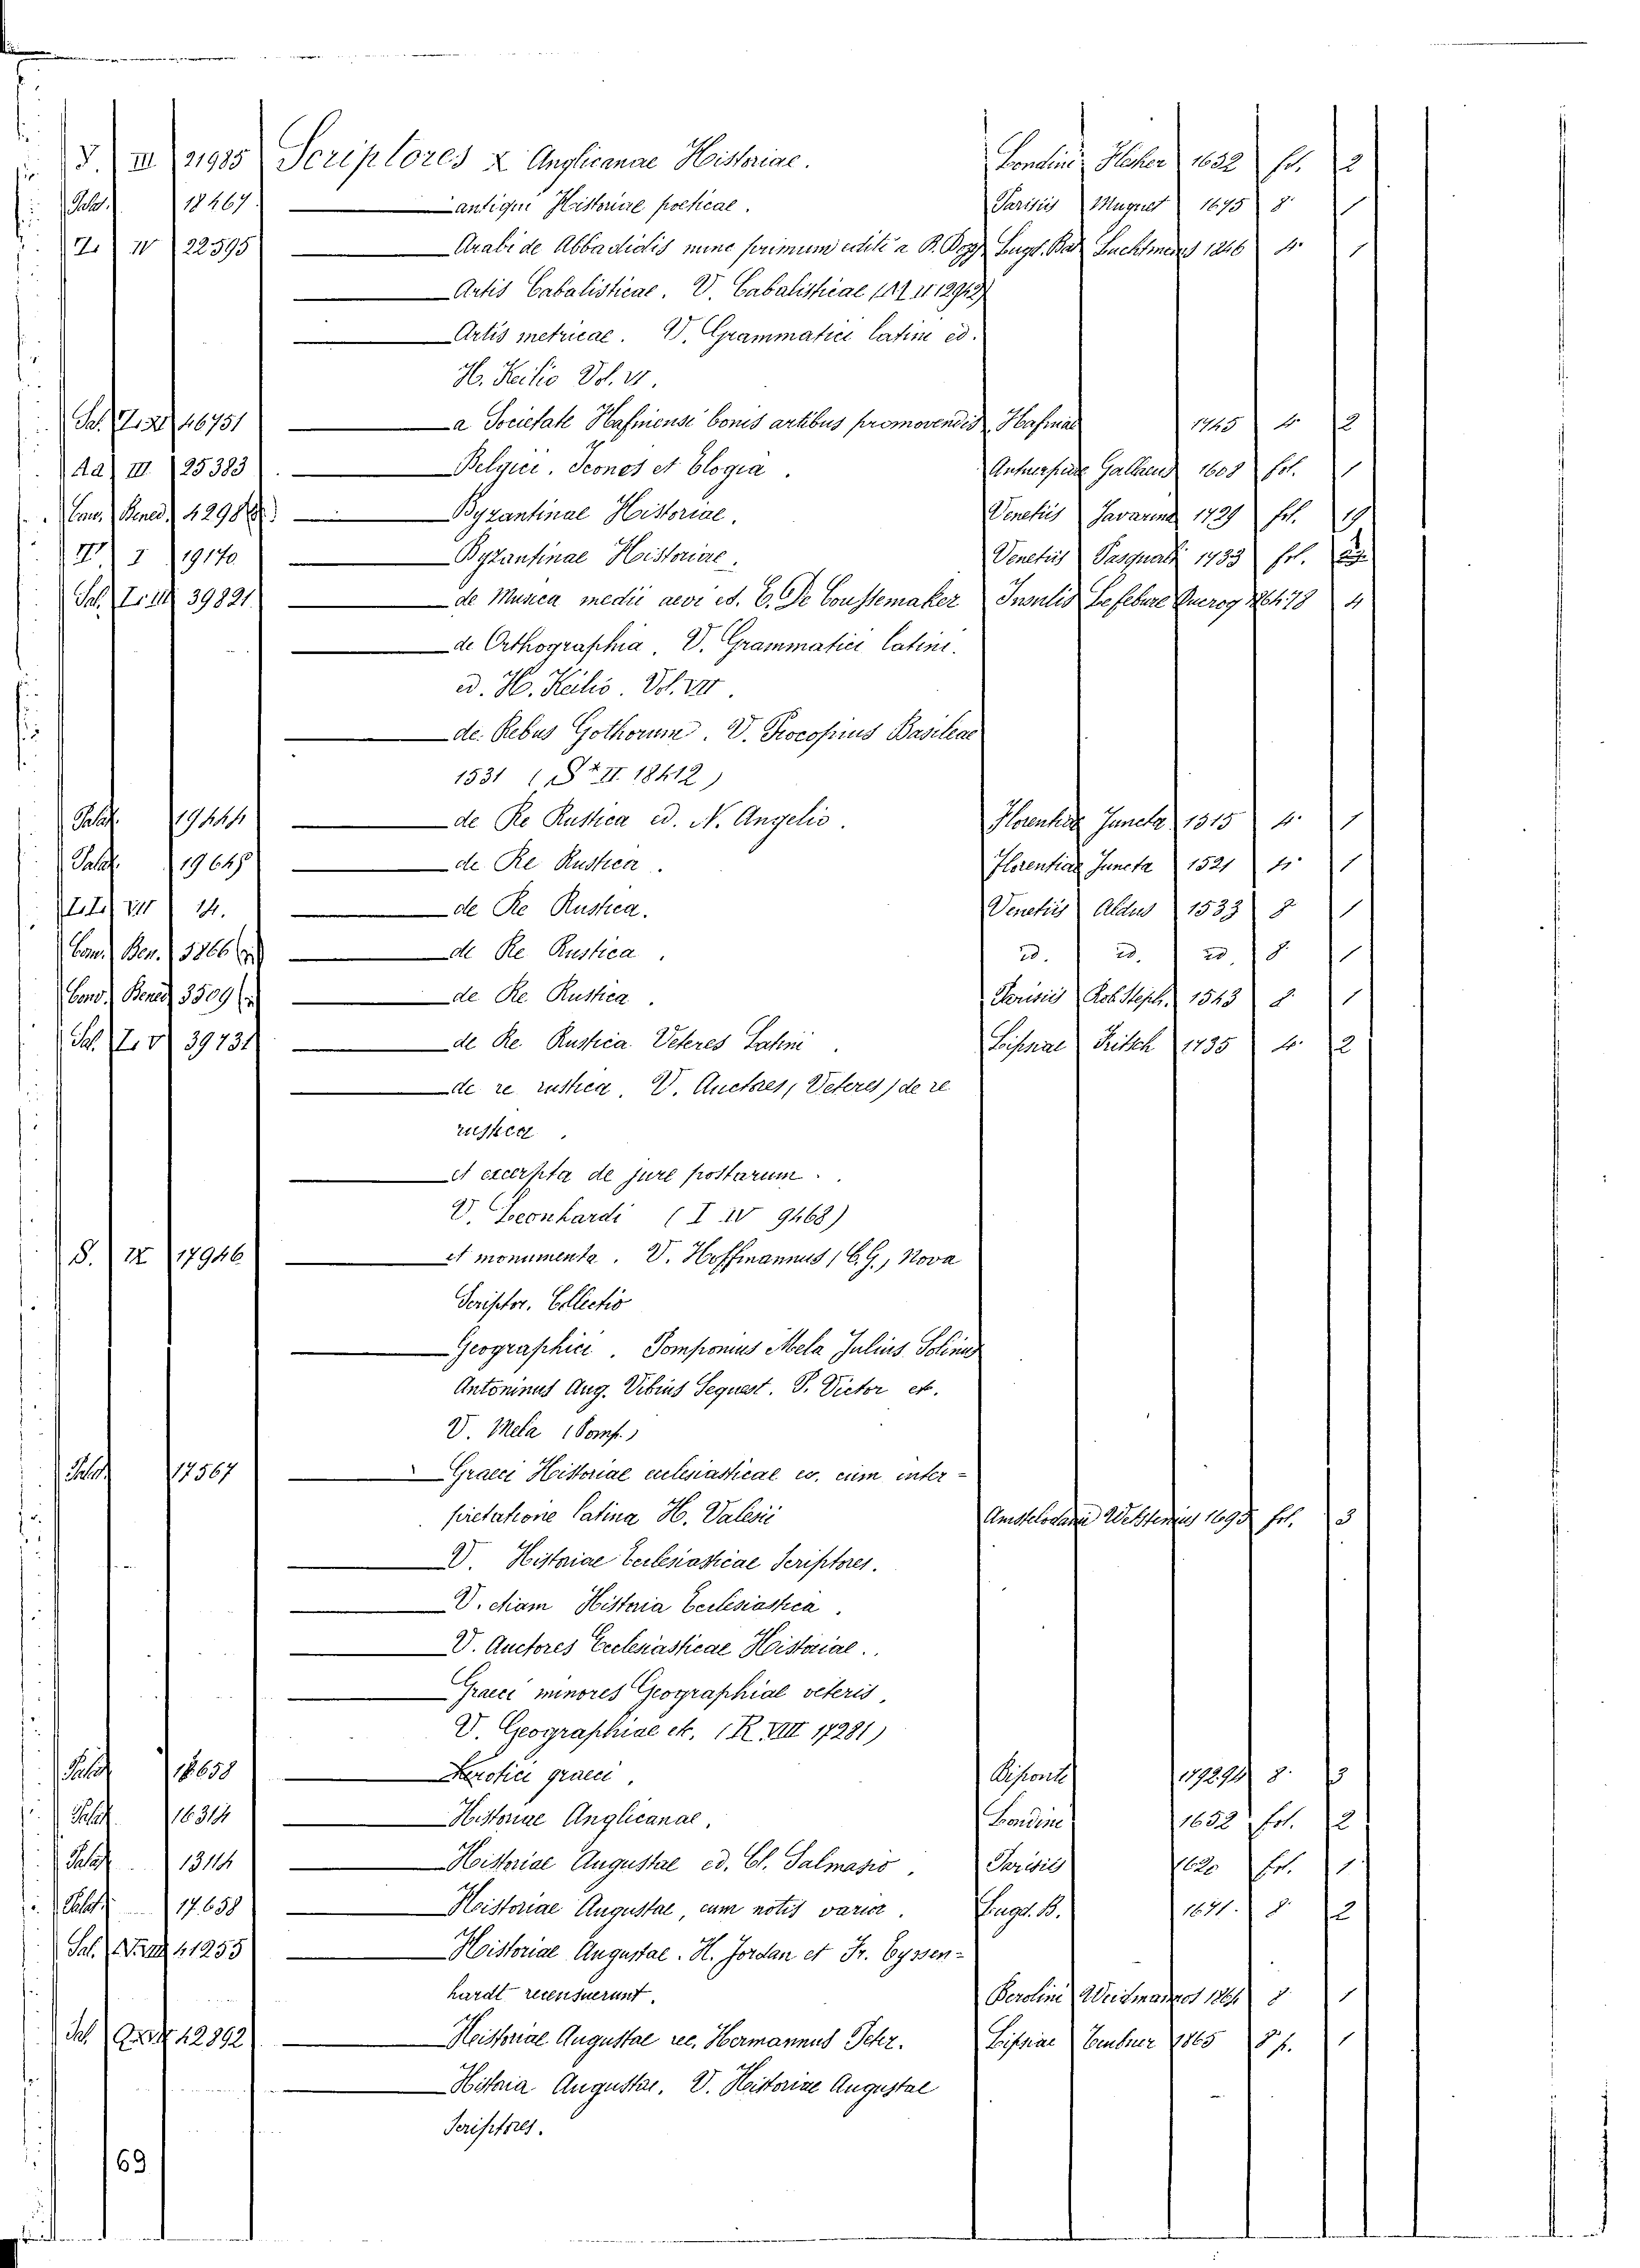 V. III 21985 Scriptores X Anglicanae Historiae. Londini 1652 fol. 2
Palat. 18467 antiqui Historiae poeticae. Parisiis Muguet 1675 8 1
Z. IV 22395 Arabi de Abbadidis nunc primum editi a R. Dozy Lugd. Bat Luchtmans 1846 4. 1
Artis Cabalisticae. V. Cabalisticae
Artis metricae. V. Grammatici latini ed.
H. Keilio Vol. VI.
Sal. 46751 a Societate Hafniensi bonis artibus promovendis Hafniae 1745 4. 2
Aa III 25383 Belgici. Icones et Elogia. Antverpiae Gallaeus 1608 fol. 1
Conv. Bened. 4298 Byzantinae Historiae. Venetiis Javarina 1729 fol. 19
I 19170 Byzantinae Historiae. Venetiis Pasquali 1733 fol.
Sal. 39821 de Musica medii aevi ed. E. De Coussemaker Insulis Lefebure 4
de Orthographia. V. Grammatici latini.
ed. H. Keilio. Vol. VII.
de Rebus Gothorum. V. Procopius Basileae
1531 (S* II. 18412)
Palat. 19444 de Re Rustica ed. N. Angelio. Florentiae Juncta 1515 4. 1
Palat. 19645 de Re Rustica. Florentiae Juncta 1521 4. 1
VII 14. de Re Rustica. Venetiis Aldus 1533 8 1
Conv. Ben. 3866 de Re Rustica. id. id. id. 8. 1
Conv. Bened. 3509 de Re Rustica. Parisiis Rob. Steph. 1543 8. 1
Sal. Z. V 39731 de Re Rustica Veteres Latini. Lipsiae Fritsch 1735 4. 2
de re rustica. V. Auctores, Veteres) de re
rustica.
et excerpta de jure postarum.
V. Leonhardi (I IV 9468)
S. IX 17946 et monumenta. V. Hoffmannus, C.G., Nova
Scriptor. Collectio
Geographici. Pomponius Mela Julius Solinus
Antoninus Aug. Vibius Sequest. P. Victor etc.
V. Mela (Pomp.)
Palat. 17567 Graeci Historiae ecclesiasticae ec. cum inter=
pretatione latina H. Valesii Amstelodami Wetstenius 1695 fol. 3
V. Historiae Ecclesiasticae Scriptores.
V. etiam Historia Ecclesiastica.
V. Auctores Ecclesiasticae Historiae.
Graeci minores Geographiae veteris,
V. Geographiae etc. (R. VIII 17281)
Palat. 18658 Erotici graeci. Biponti 1792.94 8. 3
Palat. 16314 Historiae Anglicanae. Londini 1652 fol. 2
Palat. 13114 Historiae Augustae ed. Cl. Salmasio. Parisiis 1620 fol. 1
Palat. 17.658 Historiae Augustae, cum notis varior. Lugd. B. 1671. 8. 2
Sal. 41255 Historiae Augustae. H. Jordan et Fr. Eyssen=
hardt recensuerunt. Berolini Weidmannos 1864 8 1
Sal. 42892 Historiae Augustae rec. Hermannus Peter. Lipsiae Teubner 1865 8 p. 1
Historia Augustae. V. Historiae Augustae
Scriptores.
69